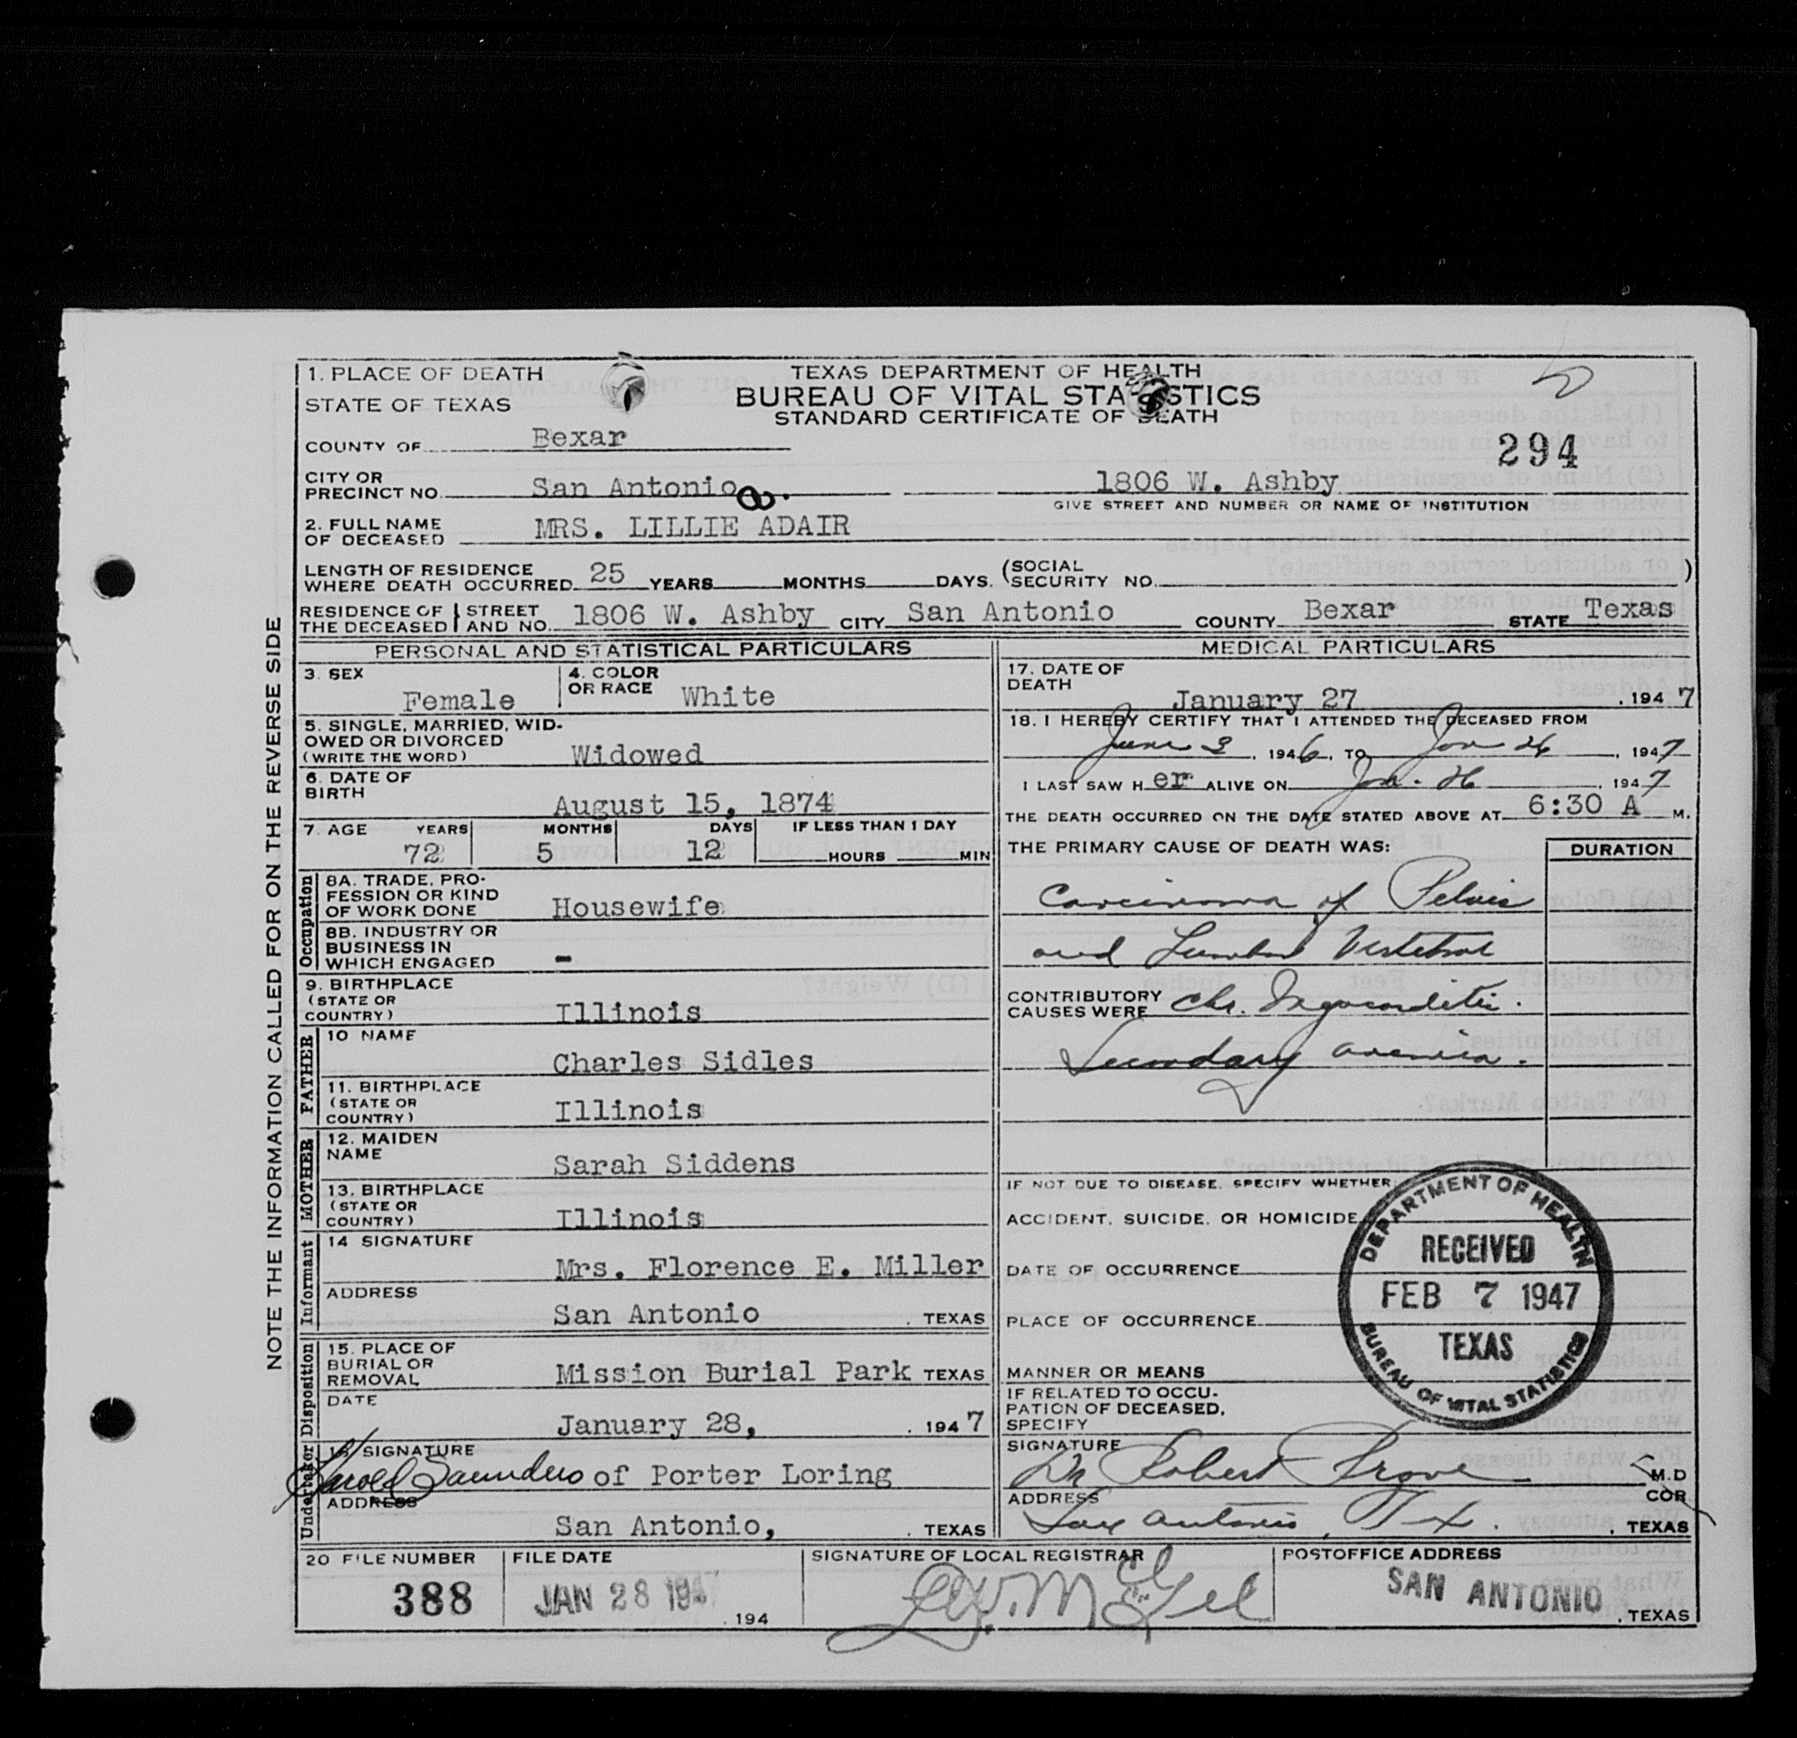 1. PLACE OF DEATH
STATE OF TEXAS
TEXAS DEPARTMENT OF HEALTH
BUREAU OF VITAL STATISTICS
STANDARD CERTIFICATE OF DEATH
294
COUNTY OF Bexar
CITY OR PRECINCT NO. San Antonio 8. 1806 W. Ashby
GIVE STREET AND NUMBER OR NAME OF INSTITUTION
2. FULL NAME OF DECEASED MRS. LILLIE ADAIR
LENGTH OF RESIDENCE WHERE DEATH OCCURRED 25 YEARS MONTHS DAYS. (SOCIAL SECURITY NO. )
RESIDENCE OF THE DECEASED STREET AND NO. 1806 W. Ashby CITY San Antonio COUNTY Bexar STATE Texas
NOTE THE INFORMATION CALLED FOR ON THE REVERSE SIDE
PERSONAL AND STATISTICAL PARTICULARS
3. SEX Female
4. COLOR OR RACE White
5. SINGLE, MARRIED, WIDOWED OR DIVORCED (WRITE THE WORD) Widowed
6. DATE OF BIRTH August 15, 1874
7. AGE YEARS MONTHS DAYS IF LESS THAN 1 DAY
72 5 12 HOURS MIN
Occupation
8A. TRADE, PROFESSION OR KIND OF WORK DONE Housewife
8B. INDUSTRY OR BUSINESS IN WHICH ENGAGED -
9. BIRTHPLACE (STATE OR COUNTRY) Illinois
FATHER
10 NAME Charles Sidles
11. BIRTHPLACE (STATE OR COUNTRY) Illinois
MOTHER
12. MAIDEN NAME Sarah Siddens
13. BIRTHPLACE (STATE OR COUNTRY) Illinois
Informant
14 SIGNATURE Mrs. Florence E. Miller
ADDRESS San Antonio , TEXAS
Disposition
15. PLACE OF BURIAL OR REMOVAL Mission Burial Park TEXAS
DATE January 28, , 1947
Undertaker
16 SIGNATURE Harold Saunders of Porter Loring
ADDRESS San Antonio, , TEXAS
MEDICAL PARTICULARS
17. DATE OF DEATH January 27 , 1947
18. I HEREBY CERTIFY THAT I ATTENDED THE DECEASED FROM
June 3 , 1946, TO Jan 26 , 1947
I LAST SAW HER ALIVE ON Jan. 26 , 1947
THE DEATH OCCURRED ON THE DATE STATED ABOVE AT 6:30 A M.
THE PRIMARY CAUSE OF DEATH WAS: DURATION
Carcinoma of Pelvis
and Lumbar Vertebrae
CONTRIBUTORY CAUSES WERE Chr. Myocarditis.
Secondary anemia.
IF NOT DUE TO DISEASE, SPECIFY WHETHER
ACCIDENT, SUICIDE, OR HOMICIDE
DATE OF OCCURRENCE
PLACE OF OCCURRENCE
MANNER OR MEANS
IF RELATED TO OCCUPATION OF DECEASED, SPECIFY
DEPARTMENT OF HEALTH
RECEIVED
FEB 7 1947
TEXAS
BUREAU OF VITAL STATISTICS
SIGNATURE Dr Robert M.D
COR
ADDRESS San Antonio, Tex. , TEXAS
20 FILE NUMBER 388
FILE DATE JAN 28 1947 , 194
SIGNATURE OF LOCAL REGISTRAR
POSTOFFICE ADDRESS SAN ANTONIO , TEXAS